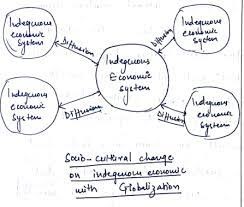 Indegnous
economic
system
Indegnous
economic
system
Diffusion
Diffusion
Indegnous
Economic
system
Indegnous
economic
system
Diffusion
Diffusion
Indegnous
economic
system
Socio-cultural change
on indegnous economic
with Globalization